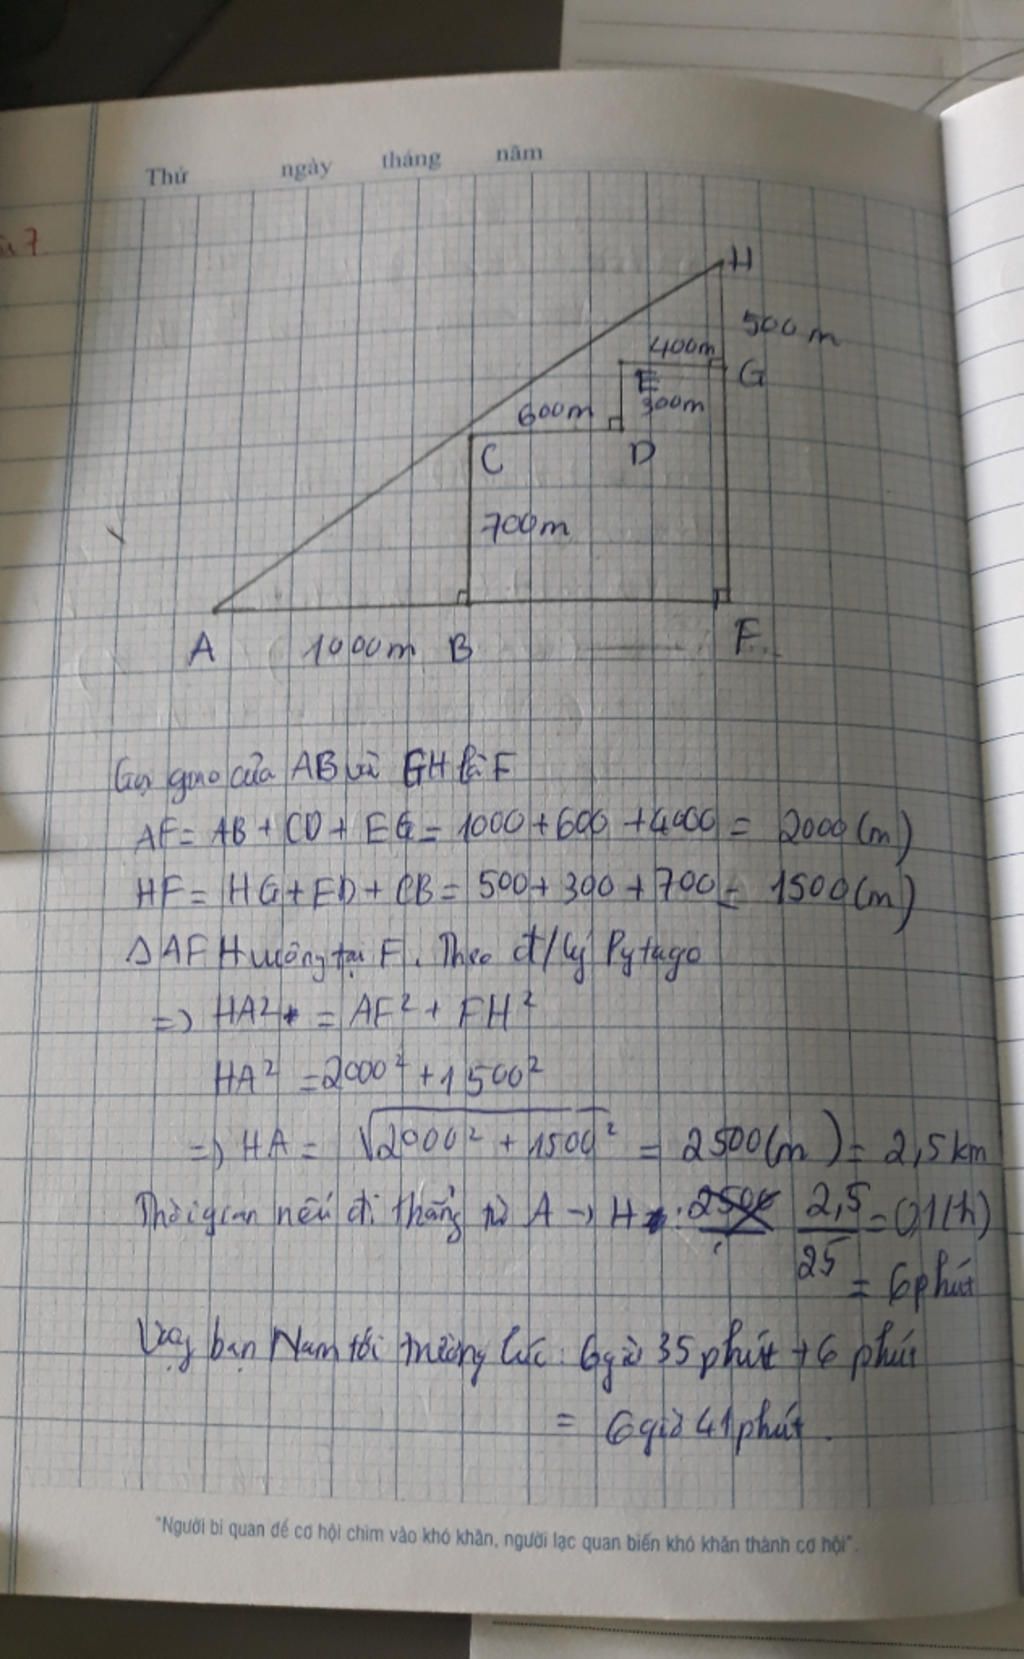 Thứ ngày tháng năm
7
H
500m
400m
G
E
300m
600m
C
D
700m
A
1000m
B
F
Gọi giao của AB và GH là F
AF = AB + CD + EG = 1000 + 600 + 4000 = 2000 (m)
HF = HG + ED + CB = 500 + 300 + 700 = 1500 (m)
Δ AFH vuông tại F. Theo đ/lý Pytago
=> HA² = AF² + FH²
HA² = 2000² + 1500²
=> HA = √2000² + 1500² = 2500(m) = 2,5km
Thời gian nếu đi thẳng từ A → H : 2500 2,5/25 = 0,1(h)
= 6 phút
Vậy bạn Nam tới trường lúc: 6giờ 35 phút + 6 phút
= 6 giờ 41 phút.
"Người bi quan để cơ hội chìm vào khó khăn, người lạc quan biến khó khăn thành cơ hội".